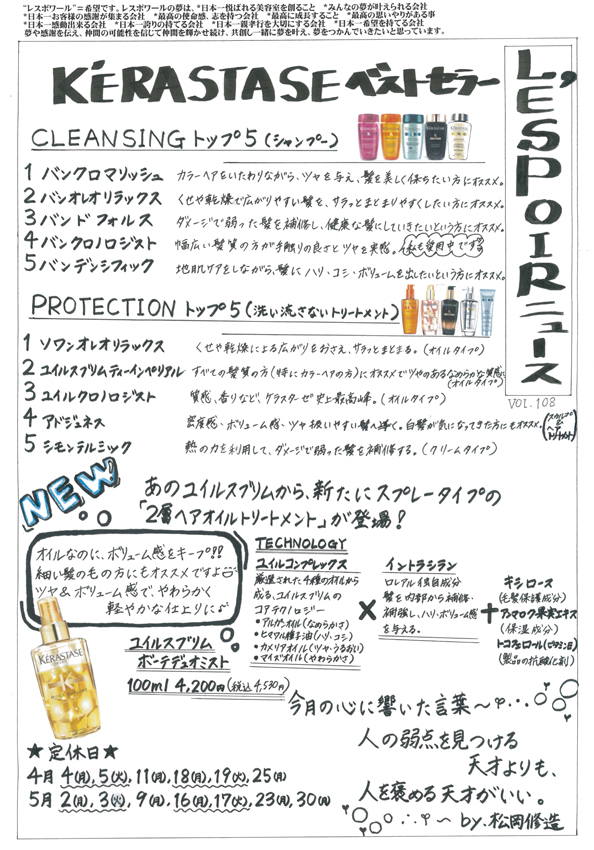 "レスポワール"=希望です。レスポワールの夢は、*日本一悦ばれる美容室を創ること　*みんなの夢が叶えられる会社
*日本一お客様の感謝が集まる会社　*最高の使命感、志を持つ会社　*最高に成長すること　*最高の思いやりがある事
*日本一感動出来る会社　*日本一誇りの持てる会社　*日本一親孝行を大切にする会社　*日本一希望を持てる会社
夢や感謝を伝え、仲間の可能性を信じて仲間を輝かせ続け、共創し一緒に夢を叶え、夢をつかんでいきたいと思っています。
L'ESPOIRニュース
VOl.108
KÉRASTASE ベストセラー
CLEANSING トップ5(シャンプー)
1 バンクロマリッシュ　カラーヘアをいたわりながら、ツヤを与え、髪を美しく保ちたい方にオススメ。
2 バンオレオリラックス　くせや乾燥で広がりやすい髪を、サラッとまとまりやすくしたい方にオススメ。
3 バンドフォルス　ダメージで弱った髪を補修し、健康な髪にしていきたいという方にオススメ。
4 バンクロノロジスト　幅広い髪質の方が手触りの良さとツヤを実感。私も愛用中です
5 バンデンシフィック　地肌ケアをしながら、髪にハリ・コシ・ボリュームを出したいという方にオススメ。
PROTECTION トップ5(洗い流さないトリートメント)
1 ソワンオレオリラックス　くせや乾燥による広がりをおさえ、サラッとまとまる。(オイルタイプ)
2 ユイルスブリムティーインペリアル　すべての髪質の方(特にカラーヘアの方)にオススメでツヤのあるなめらかな質感に(オイルタイプ)
3 ユイルクロノロジスト　質感、香りなど、ケラスターゼ史上最高峰。(オイルタイプ)
4 アドジュネス　密度感・ボリューム感・ツヤ扱いやすい髪へ導く。白髪が気になってきた方にもオススメ。(スカルプ&ヘアトリートメント)
5 シモンテルミック　熱の力を利用して、ダメージで弱った髪を補修する。(クリームタイプ)
NEW
あのユイルスブリムから、新たにスプレータイプの
「2層ヘアオイルトリートメント」が登場!
オイルなのに、ボリューム感をキープ!!
細い髪の毛の方にもオススメですよ
ツヤ&ボリューム感で、やわらかく
軽やかな仕上りに♪
KÉRASTASE
ユイルスブリム
ボーテデュオミスト
100ml 4,200円(税込4,530円)
TECHNOLOGY
ユイルコンプレックス
厳選された4種のオイルから
成る、ユイルスブリムの
コアテクノロジー
・アルガンオイル(なめらかさ)
・ヒマワリ種子油(ハリ、コシ)
・カメリアオイル(ツヤ・うるおい)
・マイズオイル(やわらかさ)
×
イントラシラン
ロレアル独自成分
髪を内部から補修・
補強し、ハリ・ボリューム感
を与える。
+
キシロース
(毛髪保護成分)
アンマロク果実エキス
(保湿成分)
トコフェロール(ビタミンE)
(製品の抗酸化剤)
★定休日★
4月 4(月),5(火),11(月),18(月),19(火),25(月)
5月 2(月),3(火),9(月),16(月),17(火),23(月),30(月)
今月の心に響いた言葉〜
人の弱点を見つける
天才よりも、
人を褒める天才がいい。
〜 by.松岡修造